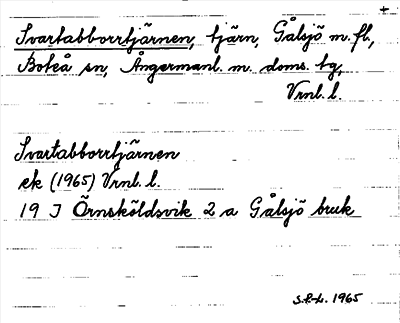 +
Svartabborrtjärnen, tjärn, Gålsjö m. fl.,
Boteå sn, Ångermanl. m. doms. tg,
Vrnl. l.
Svartabborrtjärnen
ek (1965) Vrnl. l.
19 J Örnsköldsvik 2 a Gålsjö bruk
S.F-L. 1965